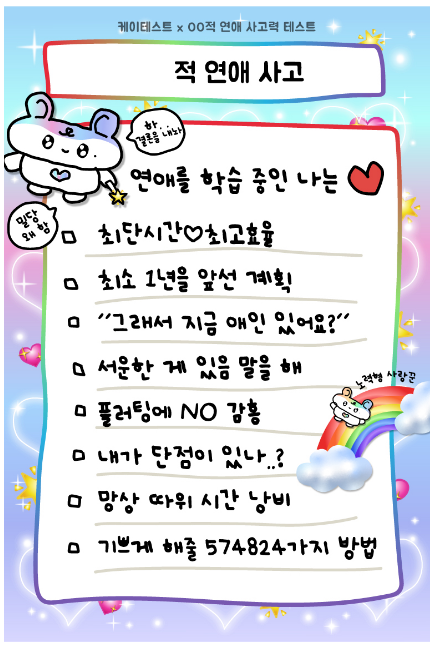 케이테스트 x OO적 연애 사고력 테스트
적 연애 사고
하..
결론을 내놔
연애를 학습 중인 나는
밀당
왜 함
최단시간♡최고효율
최소 1년을 앞선 계획
“그래서 지금 애인 있어요?”
서운한 게 있음 말을 해
노력형 사랑꾼
플러팅에 NO 감흥
내가 단점이 있나..?
망상 따위 시간 낭비
기쁘게 해줄 574824가지 방법